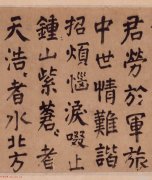 君勞於軍旅
中世情難諧
招煩惱淚啜上
鍾山紫蓍者
天浩者水北方